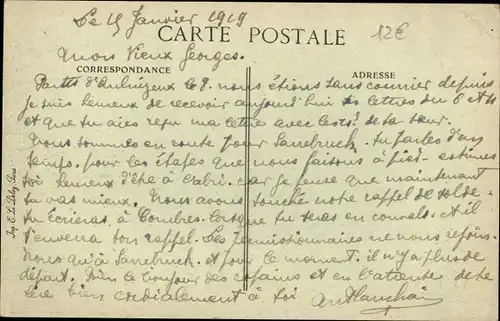 Le 15 Janvier 1919
CARTE POSTALE
12€
Mon Vieux Georges.
CORRESPONDANCE
ADRESSE
Partis d' le 8. nous étions sans courrier depuis
je suis heureux de recevoir aujourd'hui les lettres du 6 et
et que tu aies reçu ma lettre avec de ta sœur.
Nous sommes en route pour Sarrebruck. tu parles d'un
temps. pour les étapes que nous faisons à pied. estimes
toi heureux d'être à l'abri. car je pense que maintenant
tu vas mieux. Nous avons touché notre rappel de solde.
tu écrieras à Combres. lorsque tu seras en convals. et il
t'enverra ton rappel. Les permissionnaires ne nous rejoin-
dront qu'à Sarrebruck. et pour le moment. il n'y a plus de
départ. Bien le bonjour des copains et en l'attente de te
lire bien cordialement à toi